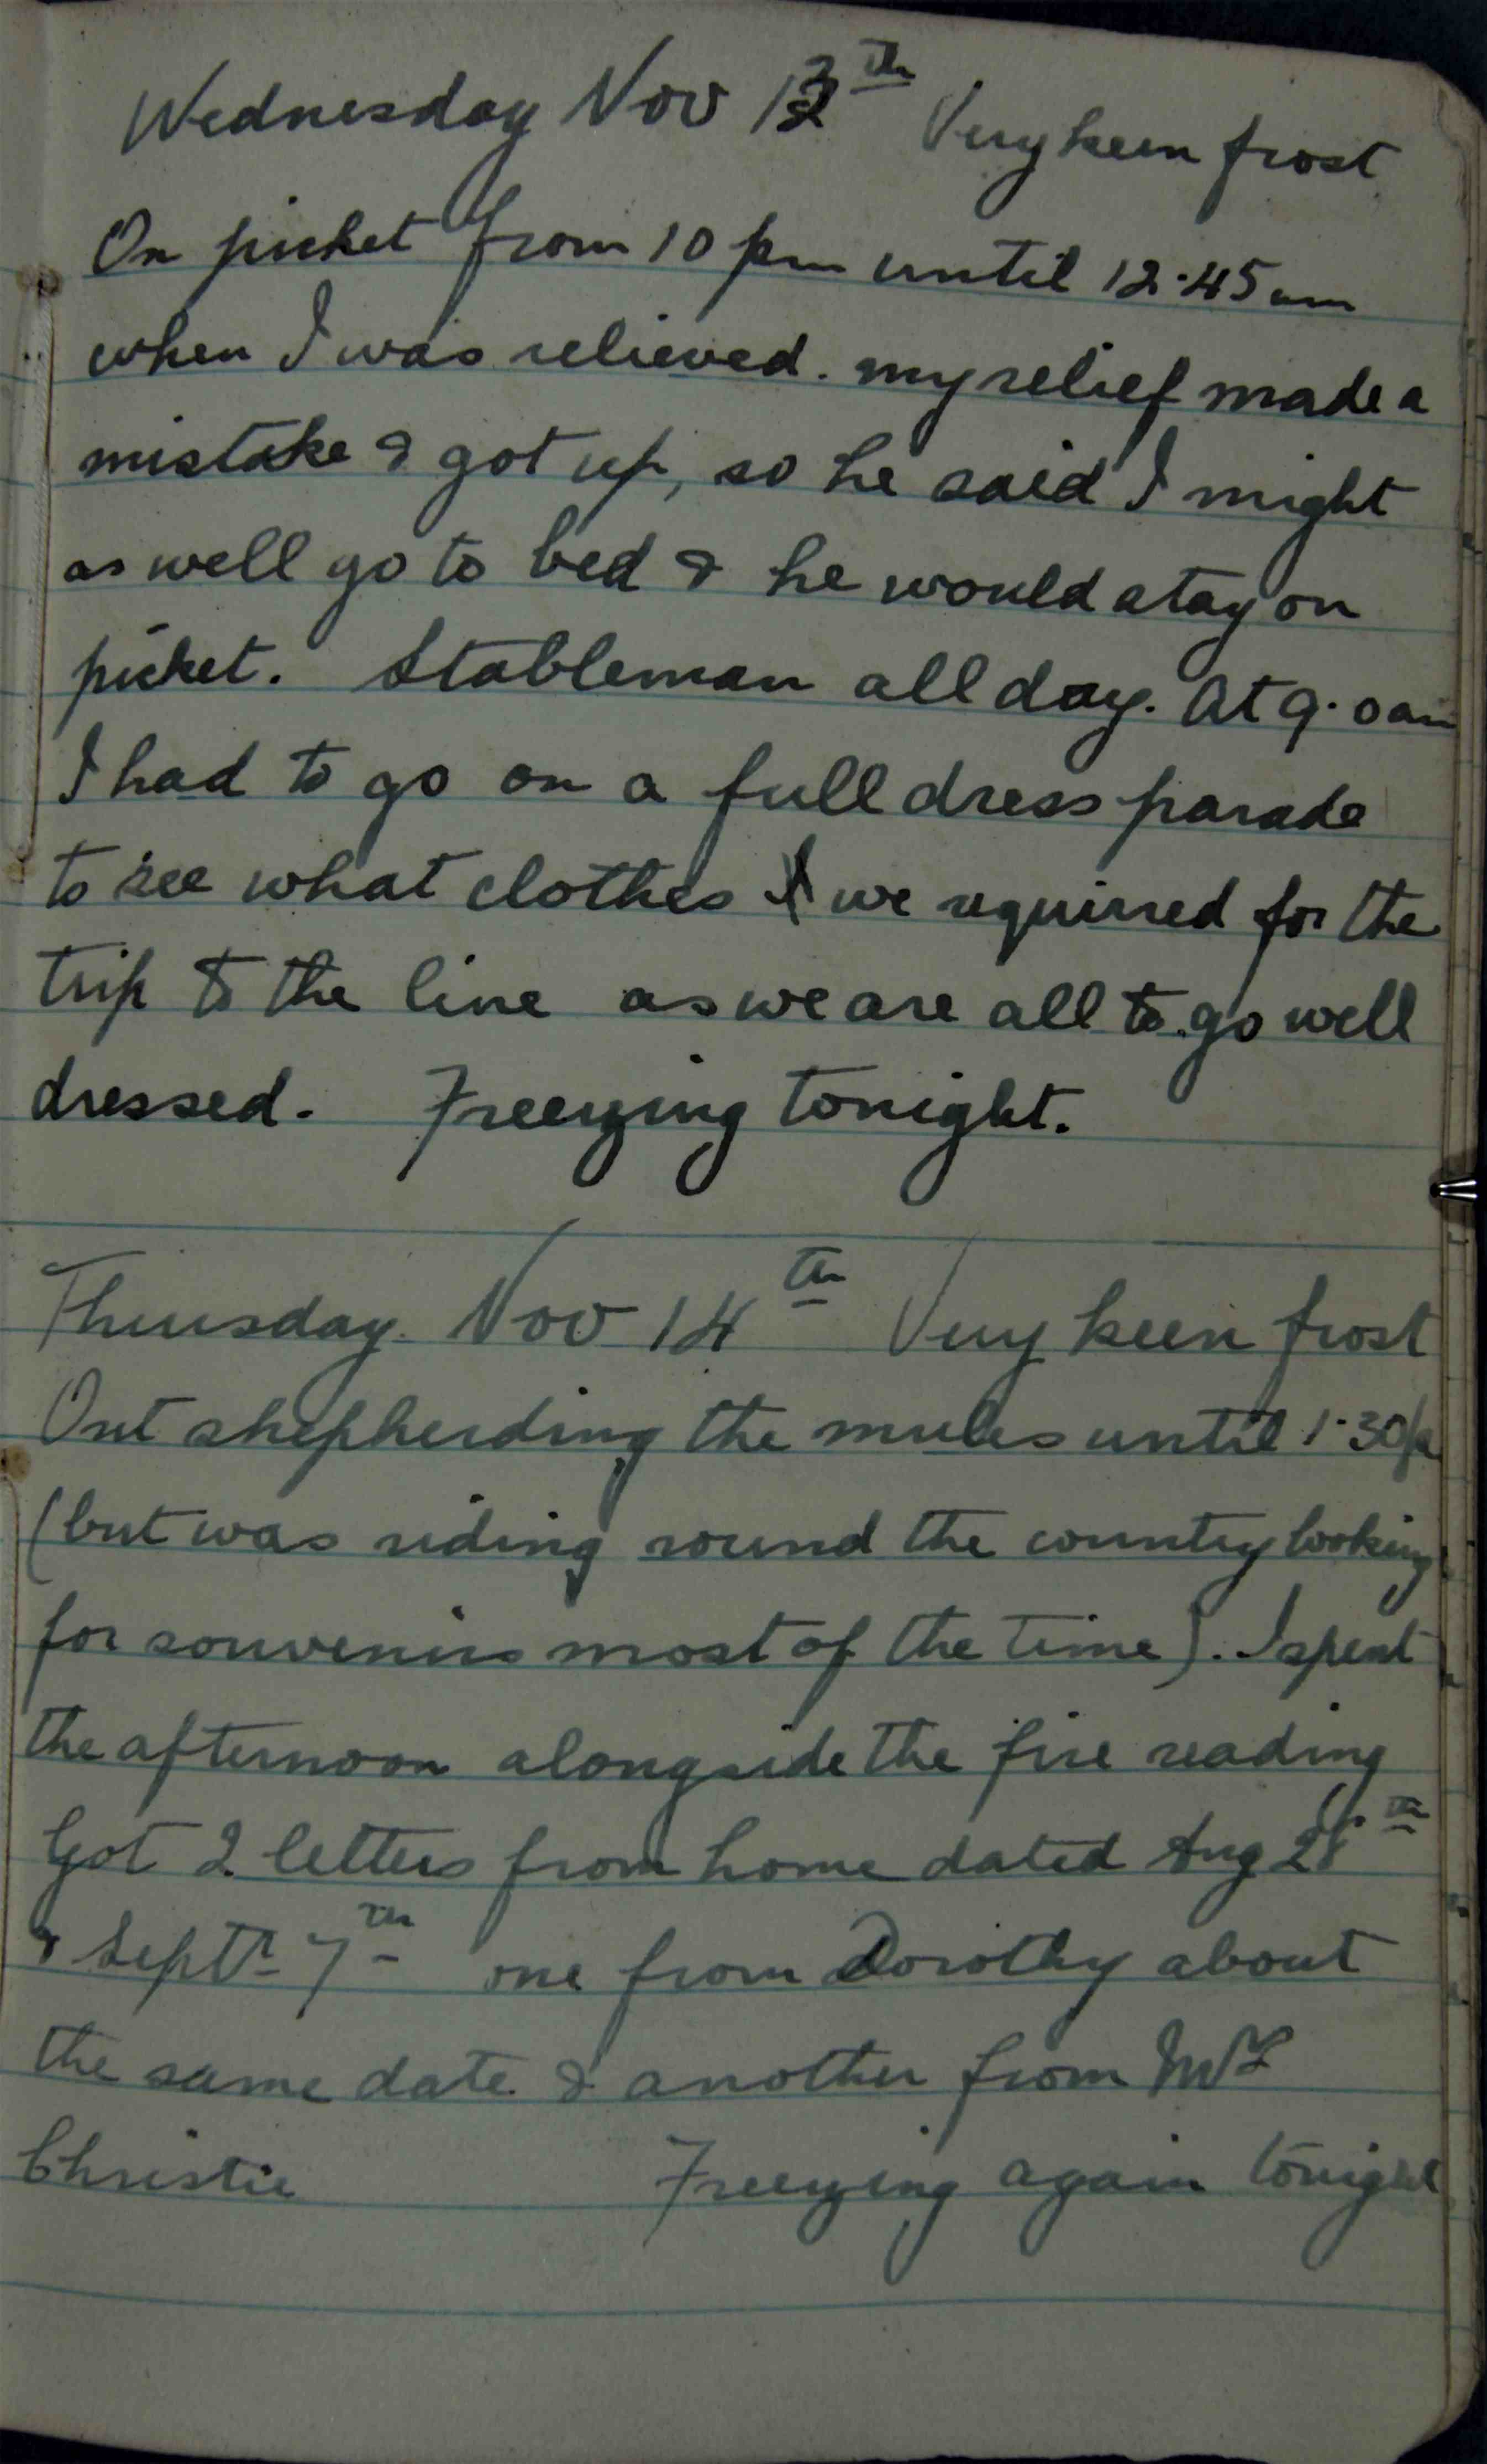 Wednesday Nov 13th Very keen frost
On picket from 10 pm until 12.45 am
when I was relieved. my relief made a
mistake & got up, so he said I might
as well go to bed & he would stay on
picket. Stableman all day. At 9.0 am
I had to go on a full dress parade
to see what clothes we required for the
trip to the line as we are all to go well
dressed. Freezing tonight.
Thursday Nov 14th Very keen frost
Out shepherding the mules until 1.30 p
(but was riding round the country looking
for souvenirs most of the time). I spent
the afternoon alongside the fire reading
Got 2 letters from home dated Aug 28th
& Septr 7th one from Dorothy about
the same date & another from Mr
Christie Freezing again tonight